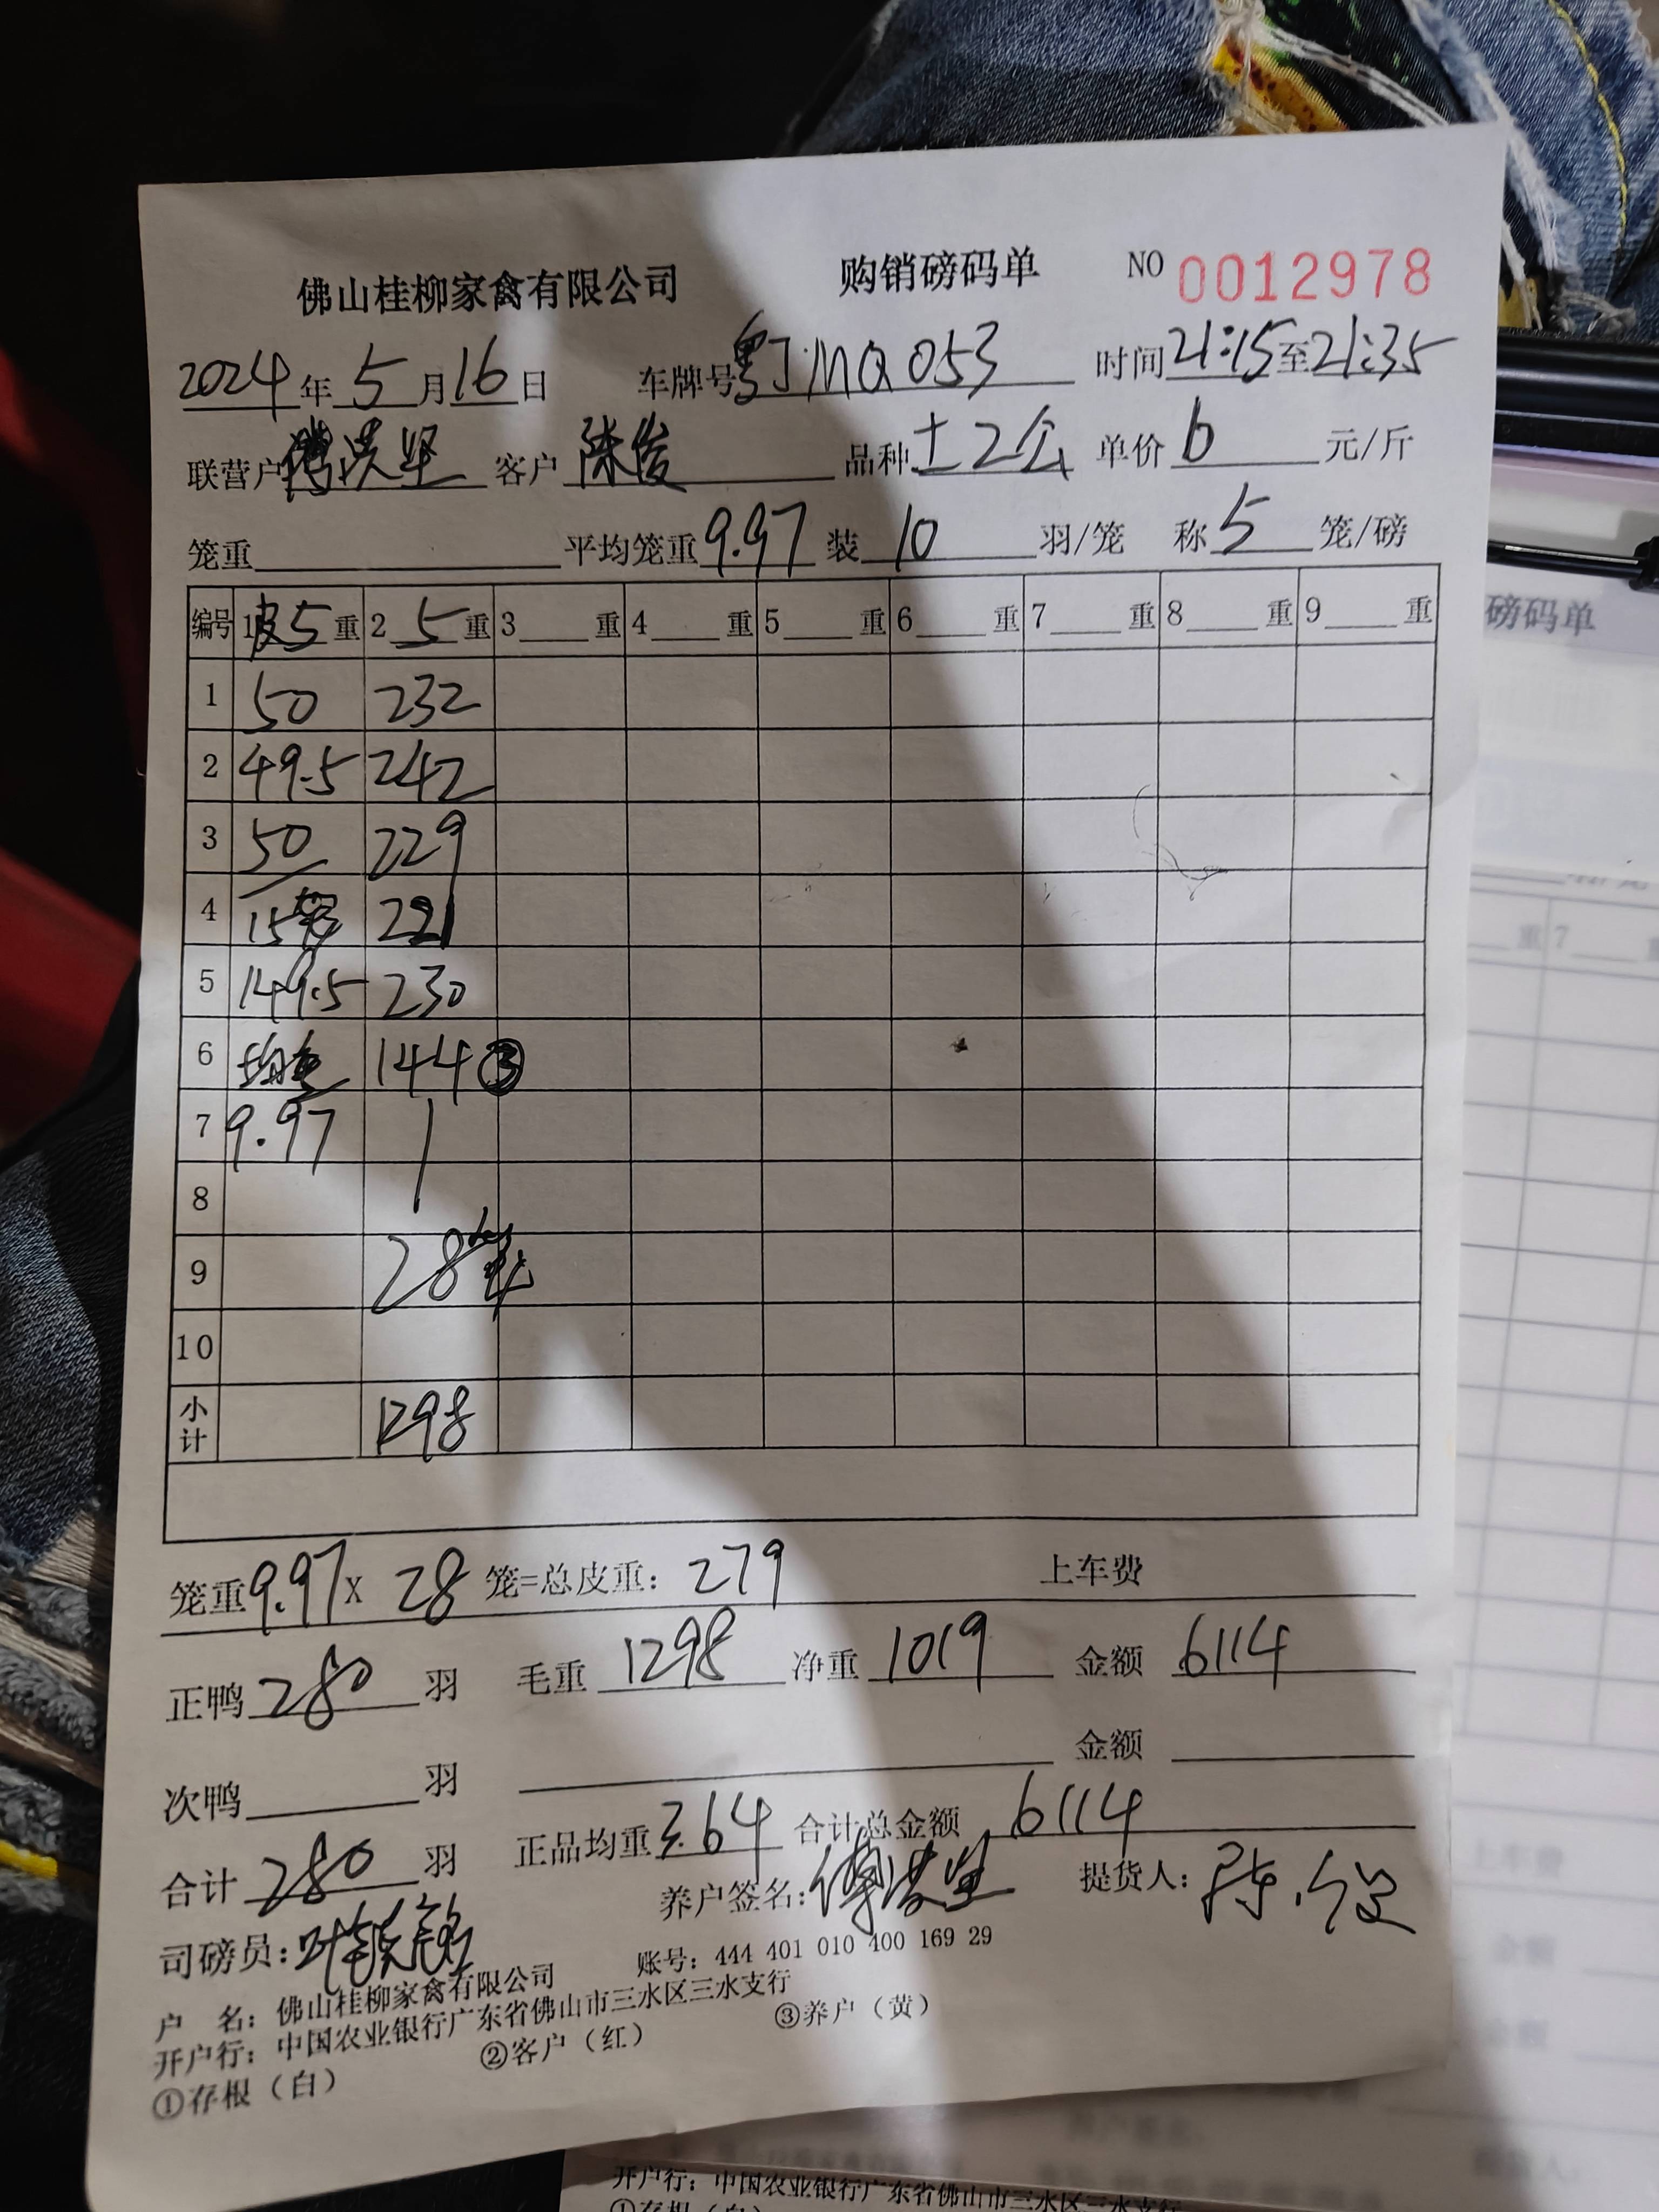 佛山桂柳家禽有限公司 购销磅码单 NO 0012978
2024年5月16日 车牌号粤J·MQ053 时间21:15至21:35
联营户 客户 陈俊 品种 单价6元/斤
笼重 平均笼重9.97 装10羽/笼 称5笼/磅
编号 1皮5重 2 5重 3 重 4 重 5 重 6 重 7 重 8 重 9 重
1 50 232
2 49.5 242
3 50 229
4 15笼 221
5 149.5 230
6 均重 144③
7 9.97
8
9 28笼
10
小计 1298
笼重9.97X 28笼=总皮重：279 上车费
正鸭280羽 毛重1298 净重1019 金额6114
次鸭 羽 金额
合计280羽 正品均重3.64 合计总金额6114
司磅员： 养户签名： 提货人：陈俊
户 名：佛山桂柳家禽有限公司 账号：444 401 010 400 169 29
开户行：中国农业银行广东省佛山市三水区三水支行
①存根（白） ②客户（红） ③养户（黄）
磅码单
重 7
上车费
金额
开户行：中国农业银行广东省佛山市三水区三水支行
①存根（白）